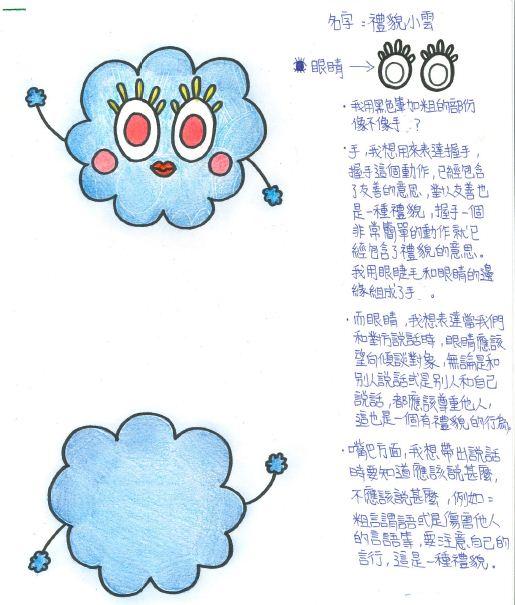 名字：禮貌小雲
眼睛 →
・我用黑色筆加粗的部份
像不像手？
・手，我想用來表達握手，
握手這個動作，已經包含
了友善的意思，對人友善也
是一種禮貌，握手一個
非常簡單的動作就已
經包含了禮貌的意思。
我用眼睫毛和眼睛的邊
緣組成了手。
・而眼睛，我想表達當我們
和對方說話時，眼睛應該
望向傾談對象，無論是和
別人說話或是別人和自己
說話，都應該尊重他人，
這也是一個有禮貌的行為。
・嘴巴方面，我想帶出說話
時要知道應該說甚麼，
不應該說甚麼，例如：
粗言謂語或是傷害他人
的言語等，要注意自己的
言行，這是一種禮貌。